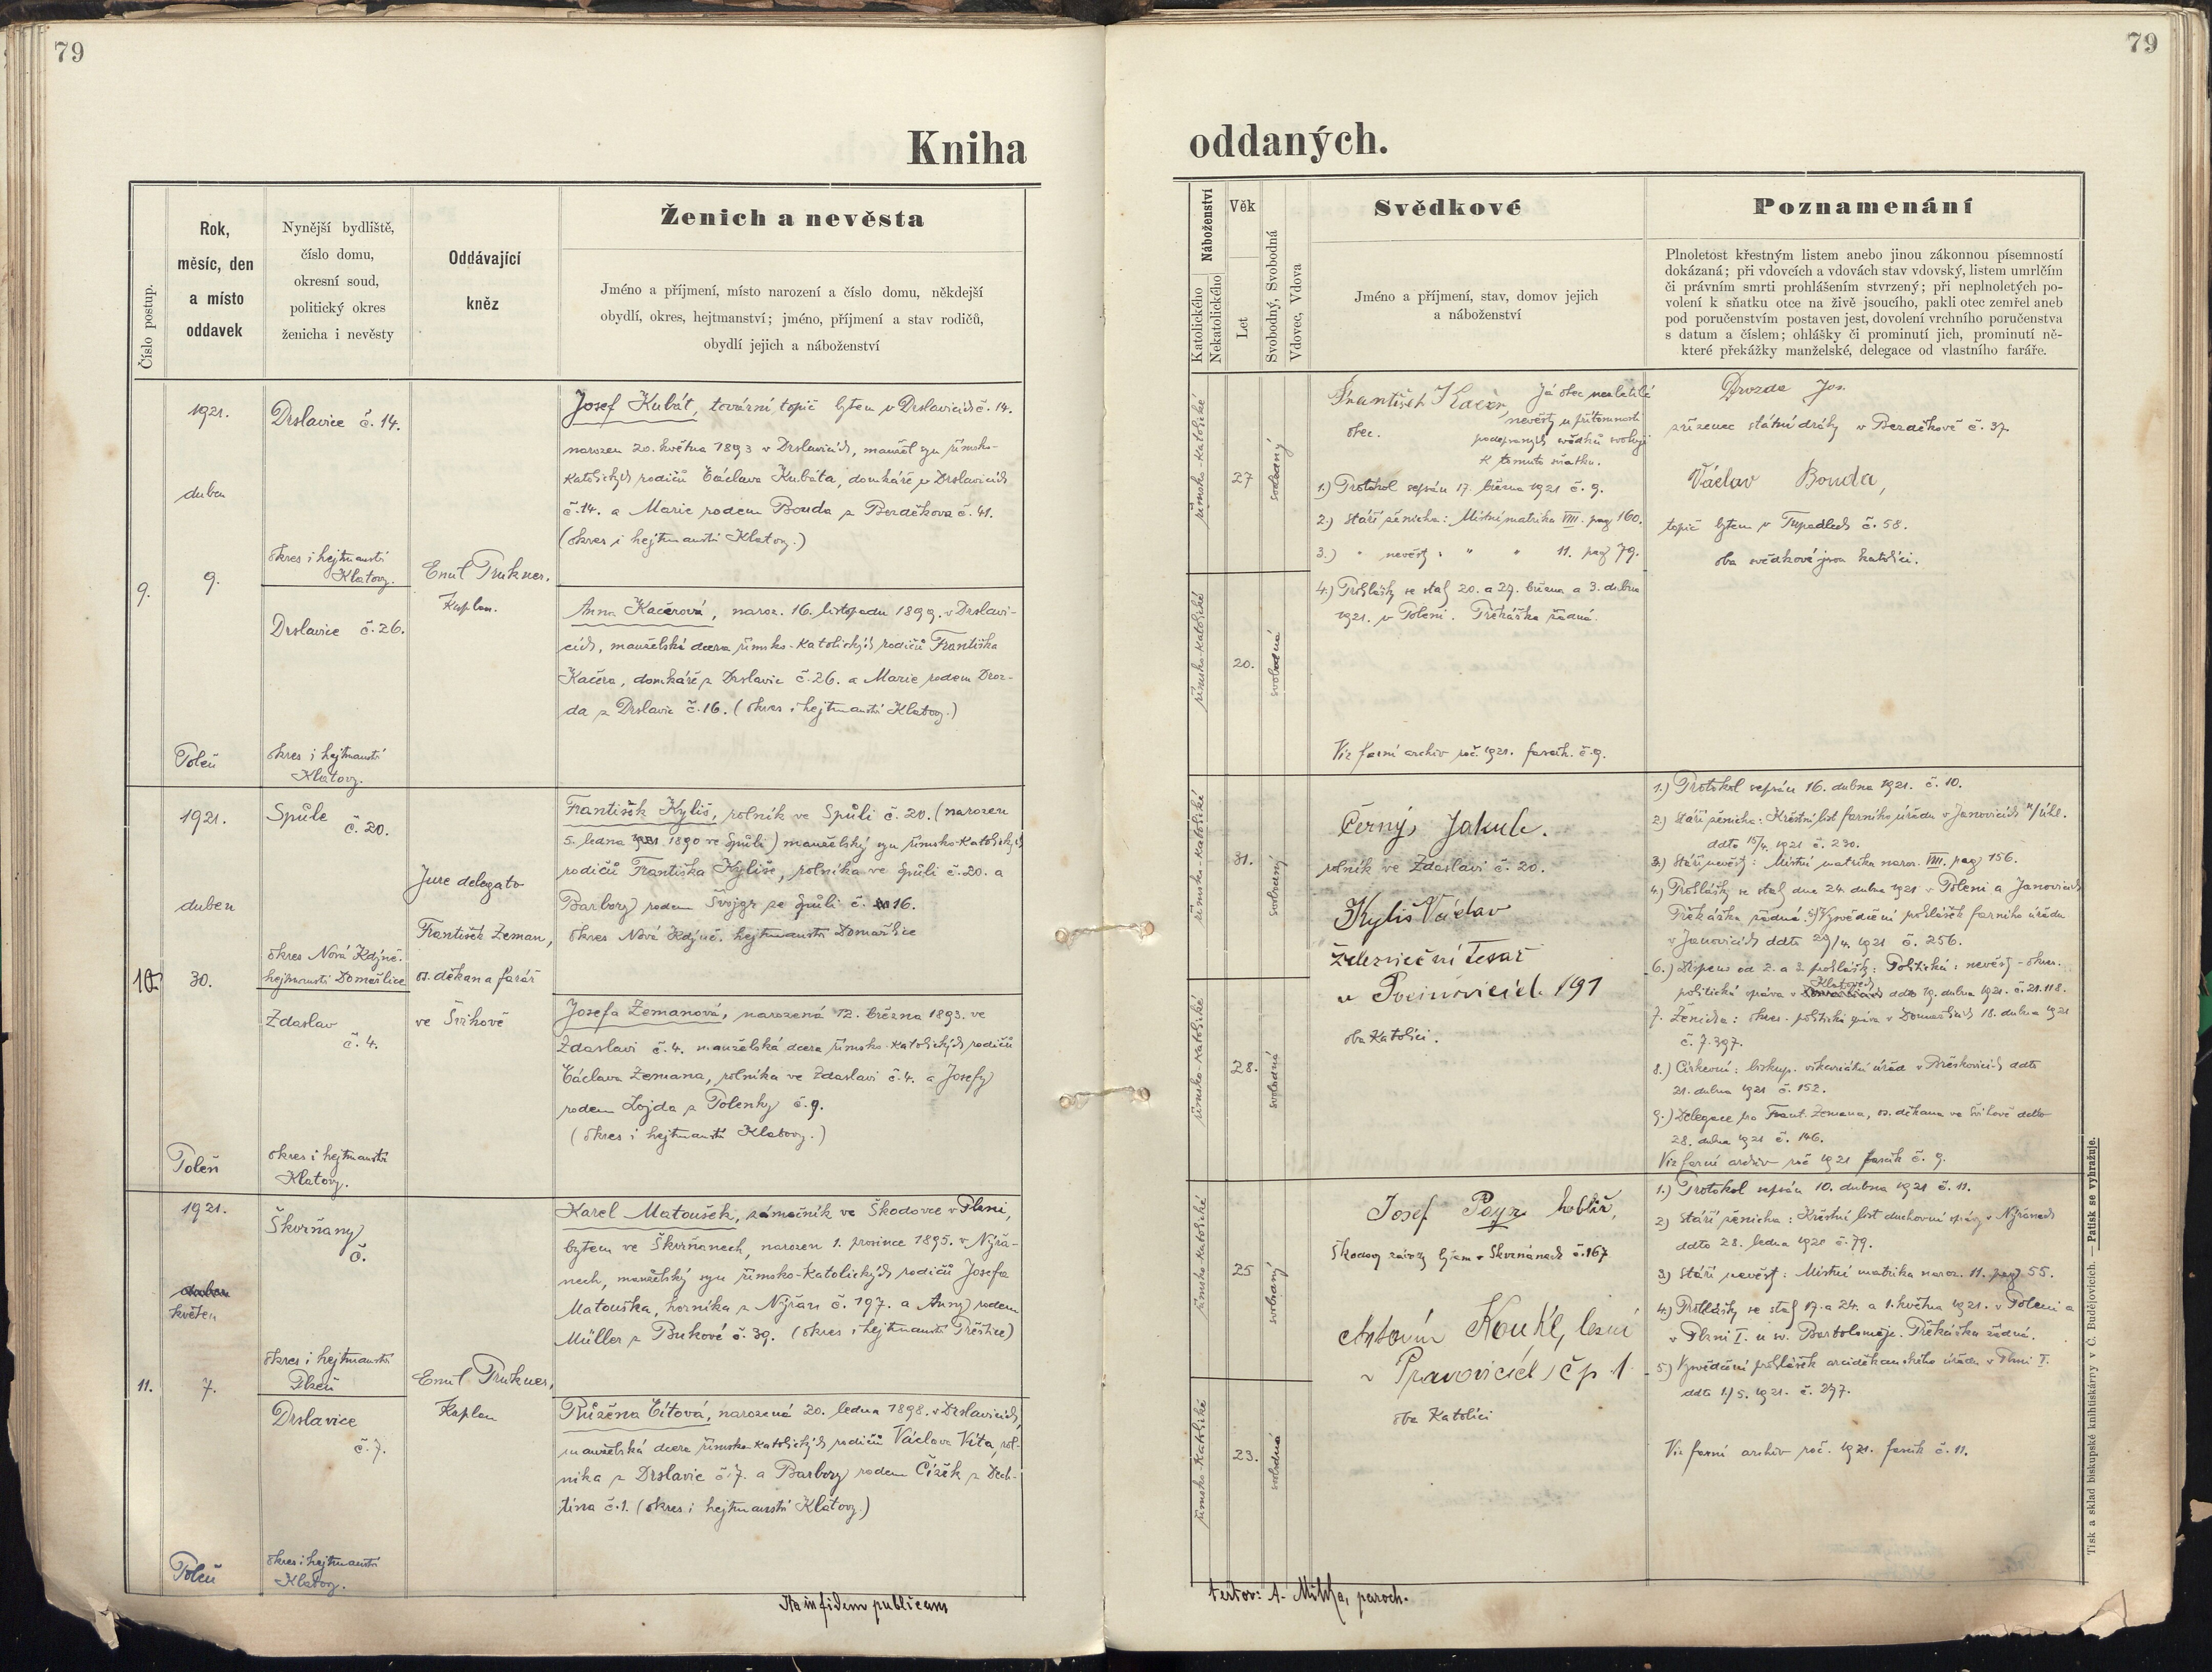 79
Kniha
Číslo postup.
Rok,
měsíc, den
a místo
oddavek
Nynější bydliště,
číslo domu,
okresní soud,
politický okres
ženicha i nevěsty
Oddávající
kněz
Ženich a nevěsta
Jméno a příjmení, místo narození a číslo domu, někdejší
obydlí, okres, hejtmanství; jméno, příjmení a stav rodičů,
obydlí jejich a náboženství
9.
1921.
duben
9.
Poleň
Drslavice č. 14.
okres i hejtmanství
Klatovy.
Drslavice č. 26.
okres i hejtmanství
Klatovy.
Emil Trukner,
Kaplan.
Josef Kubát, tovární topič bytem v Drslavicích č. 14.
narozen 20. května 1893 v Drslavicích, manžel. syn římsko-
katolických rodičů Václava Kubáta, domkáře v Drslavicích
č. 14. a Marie rodem Bouda z Bezděkova č. 41.
(okres i hejtmanství Klatovy.)
Anna Kačerová, naroz. 16. listopadu 1899. v Drslavi-
cích, manželská dcera římsko-katolických rodičů Františka
Kačera, domkáře z Drslavic č. 26. a Marie rodem Droz-
da z Drslavic č. 16. (okres i hejtmanství Klatovy.)
10
1921.
duben
30.
Poleň
Spůle č. 20.
okres Nová Kdyně.
hejtmanství Domažlice
Zdaslav
č. 4.
okres i hejtmanství
Klatovy.
Jure delegato
František Zeman,
os. děkan a farář
ve Švihově
František Kyliš, rolník ve Spůli č. 20. (narozen
5. ledna 1890 ve Spůli) manželský syn římsko-katolických
rodičů Františka Kyliše, rolníka ve Spůli č. 20. a
Barbory rodem Švojgr ze Spůli č. 16.
okres Nová Kdyně. hejtmanství Domažlice
Josefa Zemanová, narozená 12. března 1893. ve
Zdaslavi č. 4. manželská dcera římsko-katolických rodičů
Václava Zemana, rolníka ve Zdaslavi č. 4. a Josefy
rodem Lojda z Polenky č. 9.
(okres i hejtmanství Klatovy.)
11.
1921.
duben
květen
7.
Poleň
Škvrňany
č.
okres i hejtmanství
Plzeň
Drslavice
č. 7.
okres i hejtmanství
Klatovy.
Emil Trukner,
Kaplan
Karel Matoušek, zámečník ve Škodovce v Plzni,
bytem ve Škvrňanech, narozen 1. prosince 1895. v Nýřa-
nech, manželský syn římsko-katolických rodičů Josefa
Matouška, horníka z Nýřan č. 197. a Anny rodem
Müller z Bukové č. 39. (okres i hejtmanství Přeštice)
Růžena Vítová, narozená 20. ledna 1898. v Drslavicích,
manželská dcera římsko-katolických rodičů Václava Víta, rol-
níka z Drslavic č. 7. a Barbory rodem Čížek z Dech-
tína č. 1. (okres i hejtmanství Klatovy.)
Ita in fidem publicam
79
oddaných.
Náboženství
Katolického
Nekatolického
Věk
Let
Svobodný, Svobodná
Vdovec, Vdova
Svědkové
Jméno a příjmení, stav, domov jejich
a náboženství
Poznamenání
Plnoletost křestným listem anebo jinou zákonnou písemností
dokázaná; při vdovcích a vdovách stav vdovský, listem umrlčím
či právním smrti prohlášením stvrzený; při neplnoletých po-
volení k sňatku otce na živě jsoucího, pakli otec zemřel aneb
pod poručenstvím postaven jest, dovolení vrchního poručenstva
s datum a číslem; ohlášky či prominutí jich, prominutí ně-
které překážky manželské, delegace od vlastního faráře.
římsko-katolické
27
svobodný
římsko-katolické
20.
svobodná
František Kačer,
otec.
Já otec nezletilé
nevěsty u přítomnosti
podepsaných svědků svoluji
k tomuto sňatku.
1.) Protokol sepsán 17. března 1921 č. 9.
2.) Stáří ženicha: Místní matrika VIII. pag 160.
3.) " nevěsty: " " 11. pag 79.
4.) Prohlášky se staly 20. a 27. března a 3. dubna
1921. v Poleni. Překážka žádná.
Viz farní archiv roč. 1921. fascik. č. 9.
Drozda Jos.
zřízenec státní dráhy v Bezděkově č. 37.
Václav Bouda,
topič bytem v Tupadlech č. 58.
oba svědkové jsou katolíci.
římsko-katolické
31.
svobodný
římsko-katolické
28.
svobodná
Černý Jakub.
rolník ve Zdaslavi č. 20.
Kyliš Václav
železniční tesař
v Pocinovicích 191
oba Katolíci.
1.) Protokol sepsán 16. dubna 1921. č. 10.
2.) Stáří ženicha: Křestní list farního úřadu v Janovicích n/Úhl.
ddto 15/4. 1921 č. 230.
3.) Stáří nevěsty: Místní matrika naroz. VIII. pag 156.
4.) Prohlášky se staly dne 24. dubna 1921 v Poleni a Janovicích
Překážka žádná. 5.) Vysvědčení prohlášek farního úřadu
v Janovicích ddto 29/4. 1921 č. 256.
6.) Dispens od 2. a 3. prohlášky: Politická: nevěsty - okres.
politická správa v Klatovech ddto 19. dubna 1921. č. 21.118.
7. Ženicha: okres. politická správa v Domažlicích 18. dubna 1921
č. 7.397.
8.) Církevní: biskup. vikariátní úřad v Běškovicích ddto
21. dubna 1921 č. 152.
9.) Delegace pro Frant. Zemana, os. děkana ve Švihově ddto
28. dubna 1921 č. 146.
Viz farní archiv roč 1921 fascik č. 9.
římsko-katolické
25
svobodný
římsko-katolické
23.
svobodná
Josef Payr hoblíř,
Škodovy závody bytem v Skvrňanech č. 167
Antonín Koukl, lesní
v Pravovicích č p 1
oba Katolíci
1.) Protokol sepsán 10. dubna 1921 č. 11.
2.) Stáří ženicha: Křestní list duchovní správy v Nýřanech
ddto 28. ledna 1921 č. 79.
3.) Stáří nevěsty: Místní matrika naroz. 11. pag 55.
4.) Prohlášky se staly 17. a 24. a 1. května 1921. v Poleni a
v Plzni I. u sv. Bartoloměje. Překážka žádná.
5.) Vysvědčení prohlášek arciděkanského úřadu v Plzni I.
ddto 1/5. 1921. č. 277.
Viz farní archiv roč. 1921. fascik č. 11.
testor: A. Milka, paroch.
Tisk a sklad biskupské knihtiskárry v Č. Budějovicích. — Patisk se vyhražuje.